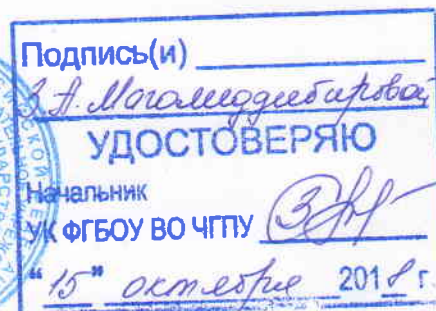 Подпись(и)
З.А. Магомеддибировой
УДОСТОВЕРЯЮ
Начальник
УК ФГБОУ ВО ЧГПУ
"15" октября 2018 г.